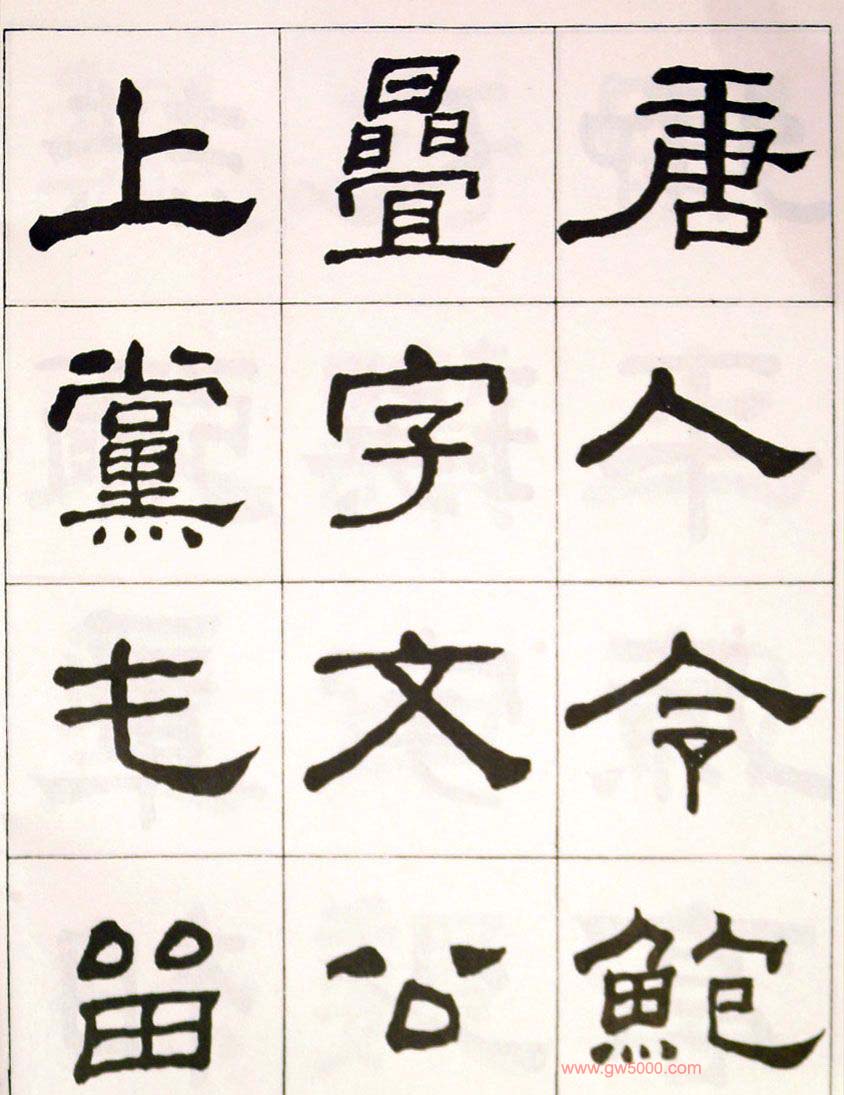 唐人令鮑
疊字文公
上黨屯留
www.gw5000.com